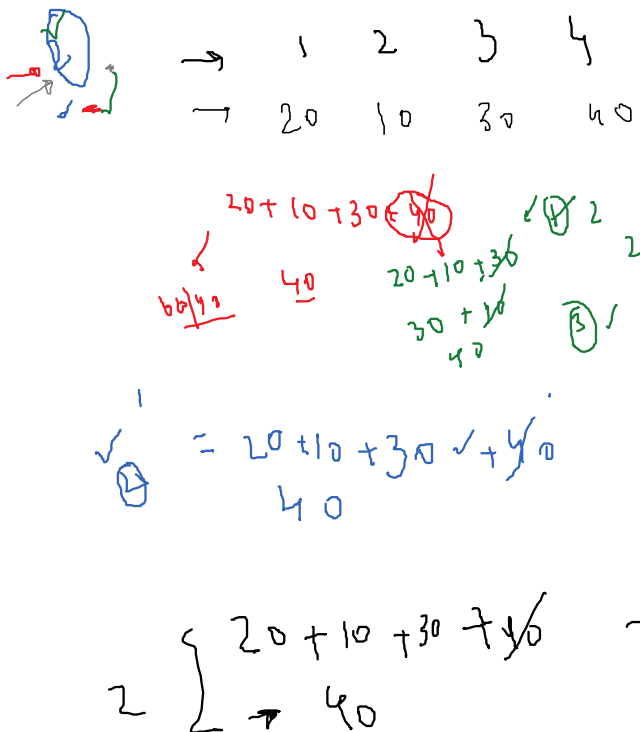 → 1 2 3 4
→ 20 10 30 40
20 + 10 + 30 + 40
1 2
2
20 + 10 + 30
40
60|40
30 + 10
3 ✓
40
1
✓ 2 = 20 + 10 + 30 ✓ + 40
40
20 + 10 + 30 + 40
2 → 40